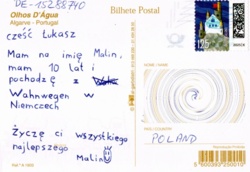 DE-15288740
Bilhete Postal
Olhos D'Água
Algarve - Portugal
cześć Łukasz
Mam na imię Malin,
mam 10 lat i
pochodzę z
Wahnwegen w
Niemczech
Życzę ci wszystkiego
najlepszego
Malin
125
POLAND